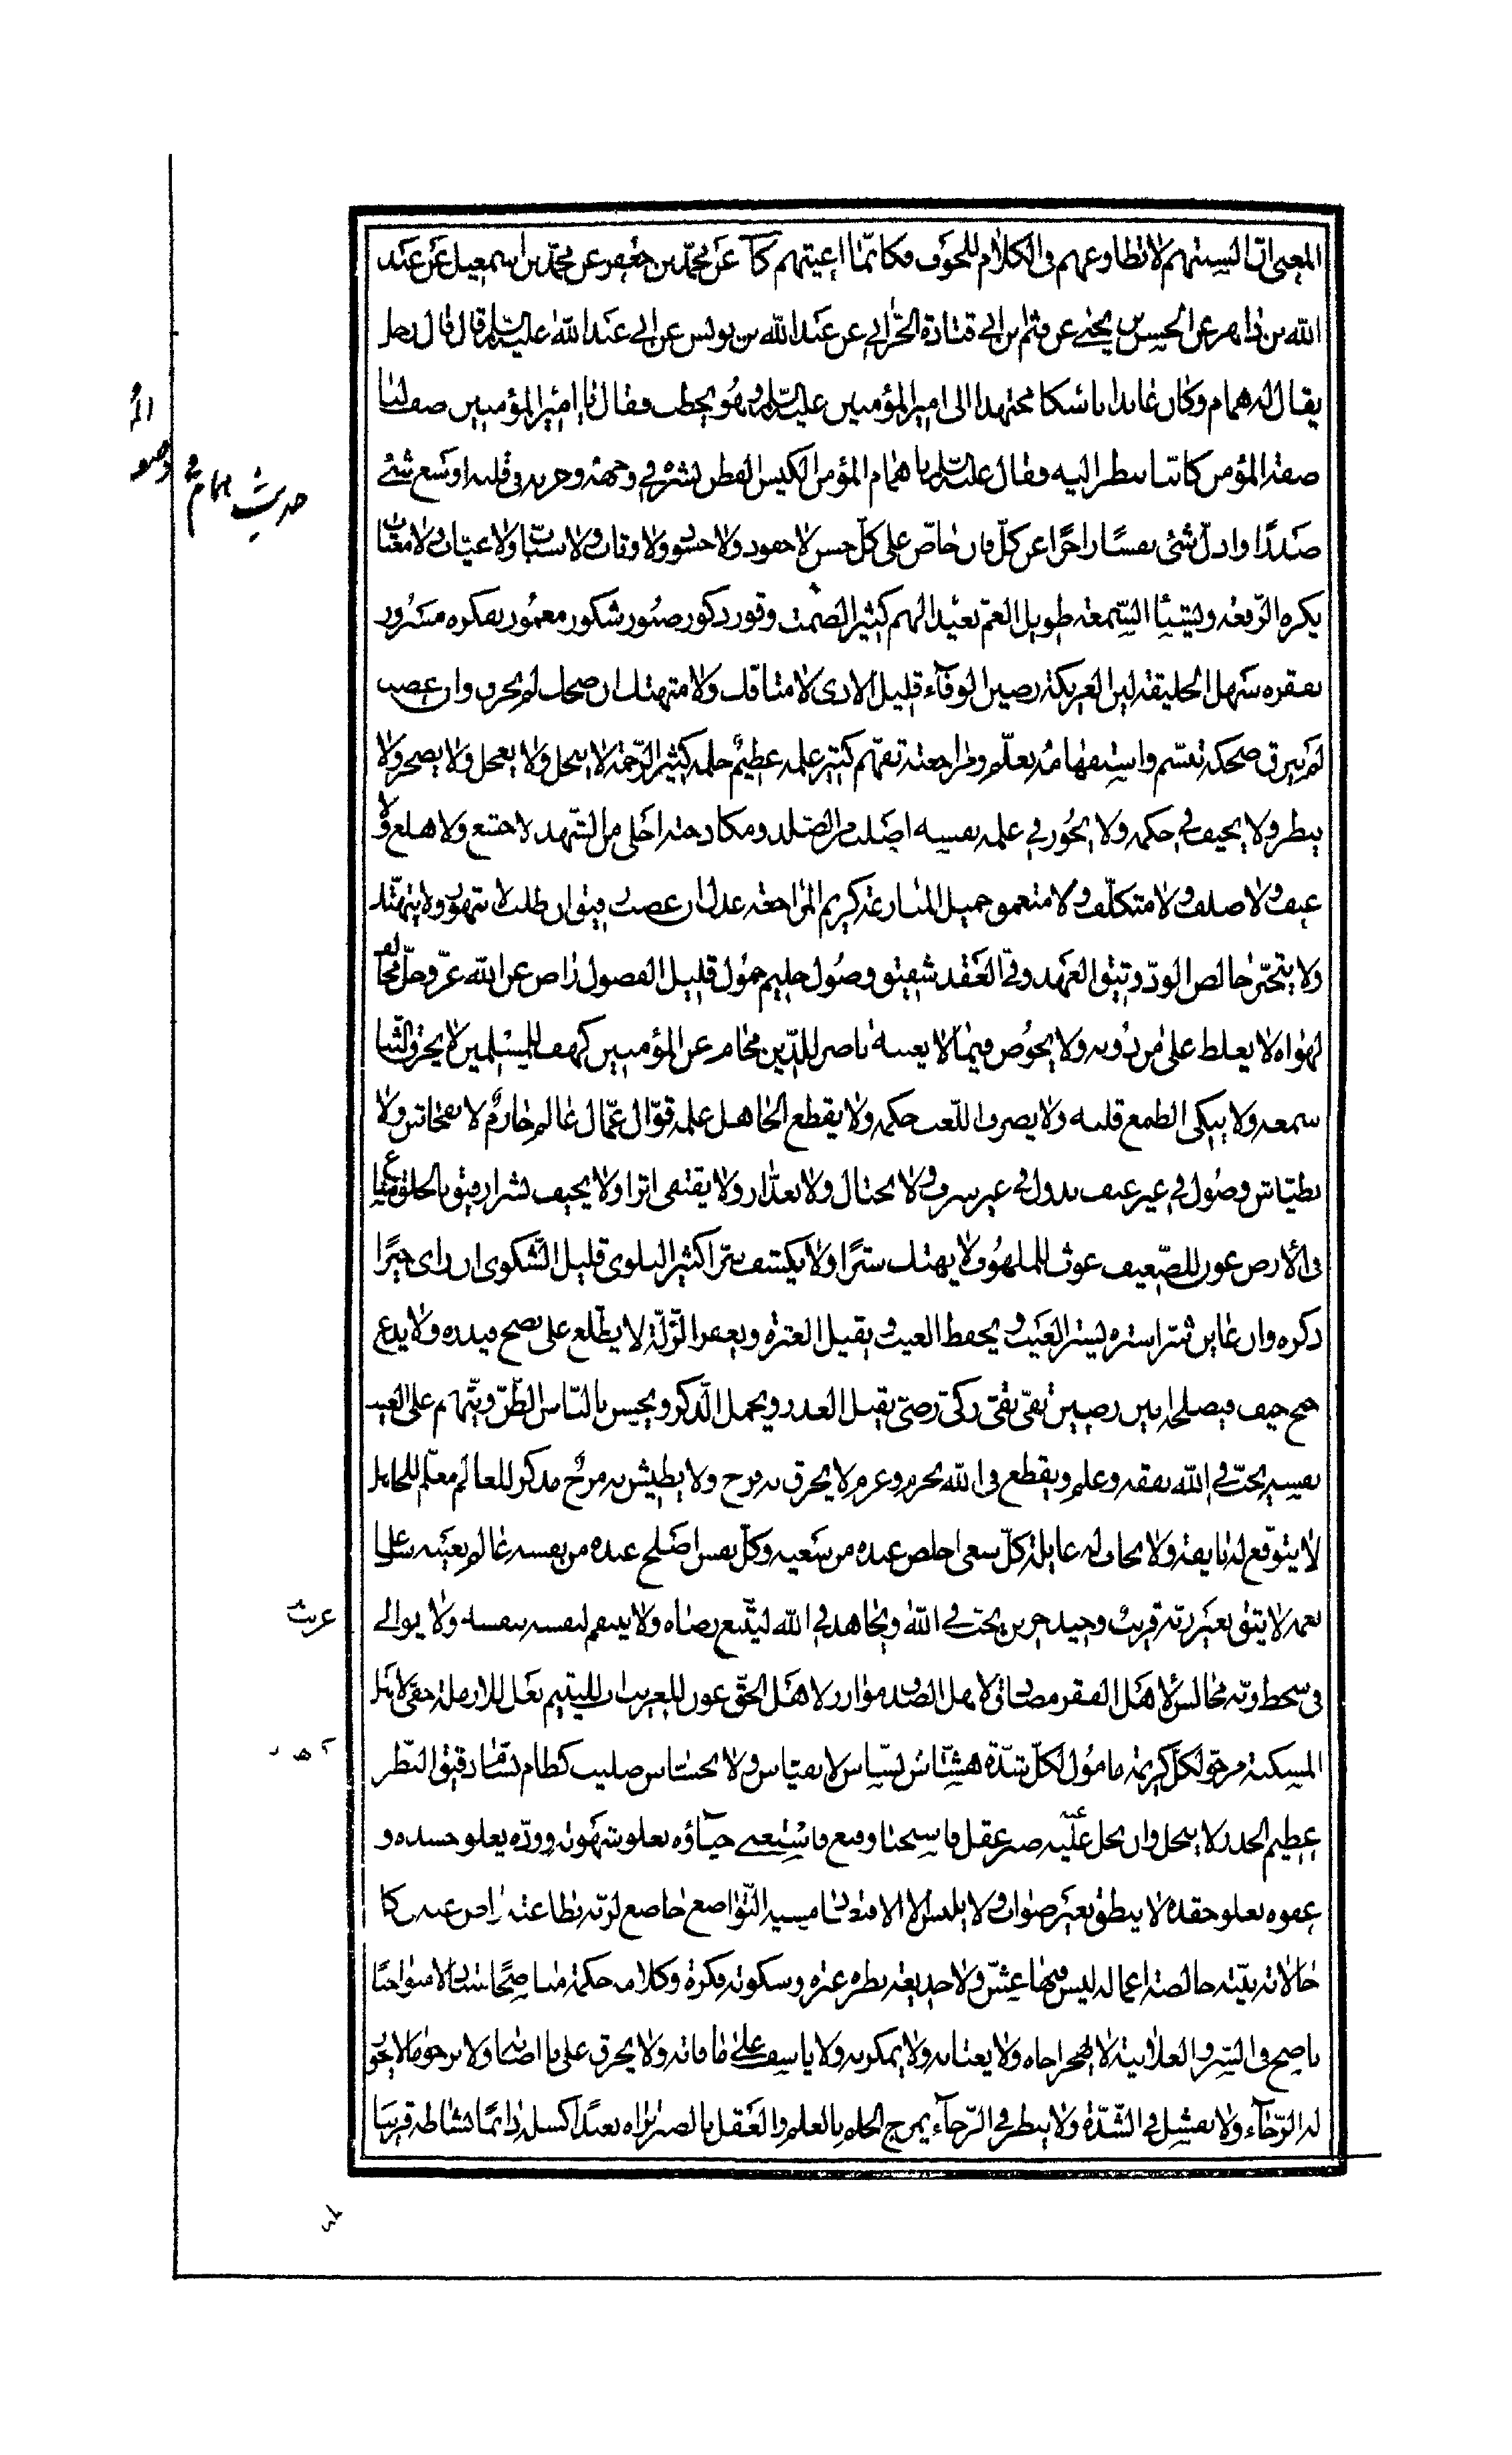 المعنى انّ السنتهم لا تطاوعهم فى الكلام للخوف فكانّما اعيتهم كا عن محمّد بن جعفر عن محمّد بن اسمعيل عن عبد
الله بن ذاهر عن الحسن بن يحيى عن قثم ابن ابى قتادة الحرّانى عن عبد الله بن يونس عن ابى عبد الله عليه السّلم قال قال رجل
يقال له همام وكان عابدا ناسكا مجتهدا الى امير المؤمنين عليه السّلم وهو يخطب فقال يا امير المؤمنين صف لنا
صفة المؤمن كاننا ننظر اليه فقال عليه السّلم يا همام المؤمن الكيس الفطن بشره فى وجهه وحزنه فى قلبه اوسع شئ
صدرًا واذلّ شئ نفسًا زاجرًا عن كلّ فان حاضّ على كلّ حسن لا حقود ولا حسود ولا وثاب ولا سبّاب ولا عيّاب ولا مغتاب
يكره الرّفعة ويشنأ السّمعة طويل الغمّ بعيد الهم كثير الصّمت وقور ذكور صبور شكور مغموم بفكره مسرور
بفقره سهل الخليقة لين العريكة رصين الوفاء قليل الاذى لا متافك ولا متهتك ان ضحك لم يخرق وان غضب
لم ينزق ضحكه تبسّم واستفهامه تعلّم ومراجعته تفهّم كثير علمه عظيم حلمه كثير الرّحمة لا يبخل ولا يعجل ولا يضجر ولا
يبطر ولا يحيف فى حكمه ولا يجور فى علمه نفسه اصلب من الصّلد ومكادحته احلى من الشّهد لا جشع ولا هلع ولا
عنف ولا صلف ولا متكلّف ولا متعمق جميل المنازعة كريم المراجعة عدل ان غضب رفيق ان طلب لا يتهور ولا يتهتّك
ولا يتجبّر خالص الودّ وثيق العهد وفىّ العقد شفيق وصول حليم حمول قليل الفضول راض عن الله عزّ وجلّ مخالف
لهواه لا يغلظ على من دونه ولا يخوض فيما لا يعنيه ناصر للدّين محام عن المؤمنين كهف للمسلمين لا يخرق الثّناء
سمعه ولا ينكى الطمع قلبه ولا يصرف اللّعب حكمه ولا يقطع الجاهل علمه قوّال عمّال عالم حازم لا بفحّاش ولا
بطيّاش وصول فى غير عنف بذول فى غير سرف ولا بختال ولا بغدّار ولا يقتفى اثرا ولا يحيف بشرا رفيق بالخلق ساع
فى الارض عون للضّعيف غوث للملهوف لا يهتك سترًا ولا يكشف سرّا كثير البلوى قليل الشّكوى ان راى خيرًا
ذكره وان عاين شرّا ستره يستر العيب ويحفظ الغيب ويقيل العثرة ويغفر الزّلّة لا يطّلع على نصح فيذره ولا يدع
جنح حيف فيصلحه امين رصين تقىّ نقىّ زكىّ رضىّ يقبل العذر ويجمل الذّكر ويحسن بالنّاس الظّنّ ويتّهم على العيب
نفسه يحبّ فى الله بفقه وعلم ويقطع فى الله بحزم وعزم لا يخرق به فرح ولا يطيش به مرح مذكر للعالم معلّم للجاهل
لا يتوقّع له بايقة ولا يخاف له غايلة كلّ سعى اخلص عنده من سعيه وكلّ نفس اصلح عنده من نفسه عالم بعيبه شاغل
بغمه لا يثق بغير ربّه قريب وحيد حزين يحبّ فى الله ويجاهد فى الله ليتّبع رضاه ولا ينتقم لنفسه بنفسه ولا يوالى
فى سخط ربّه مجالس لاهل الفقر مصادق لاهل الصّدق موازر لاهل الحقّ عون للغريب اب لليتيم بعل للارملة حفىّ باهل
المسكنة مرجوّ لكلّ كريهة مامول لكلّ شدّة هشّاش بشّاش لا بعبّاس ولا بجسّاس صليب كظّام بسّام دقيق النّظر
عظيم الحذر لا يبخل وان بخل عليه صبر عقل فاستحيا وقنع فاستغنى حياؤه يعلو شهوته وودّه يعلو حسده و
عفوه يعلو حقده لا ينطق بغير صواب ولا يلبس الا الاقتصاد مشيه التّواضع خاضع لربّه بطاعته راض عنه فى كل
حالاته نيّته خالصة اعماله ليس فيها غشّ ولا خديعة نظره عبرة وسكوته فكرة وكلامه حكمة مناصحًا متباذلا متواخيًا
ناصح فى السّر والعلانية لا يهجر اخاه ولا يغتابه ولا يمكر به ولا ياسف على ما فاته ولا يحزن على ما اصابه ولا يرجو ما لا يجوز
له الرّجاء ولا يفشل فى الشّدّة ولا يبطر فى الرّخاء يمزج الحلم بالعلم والعقل بالصبر تراه بعيدًا كسله دائمًا نشاطه قريبا
حديث همام